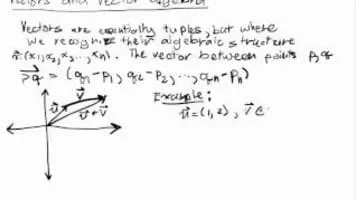 Vectors and vector algebra
Vectors are essentially tuples, but where
we recognize their algebraic structure
x⃗:(x₁,x₂,x₃,...,xₙ). The vector between points p,q
p⃗q = (q₁-p₁, q₂-p₂,...,qₙ-pₙ)
v⃗
u⃗
u⃗+v⃗
Example:
u⃗=(1,2), v⃗ C